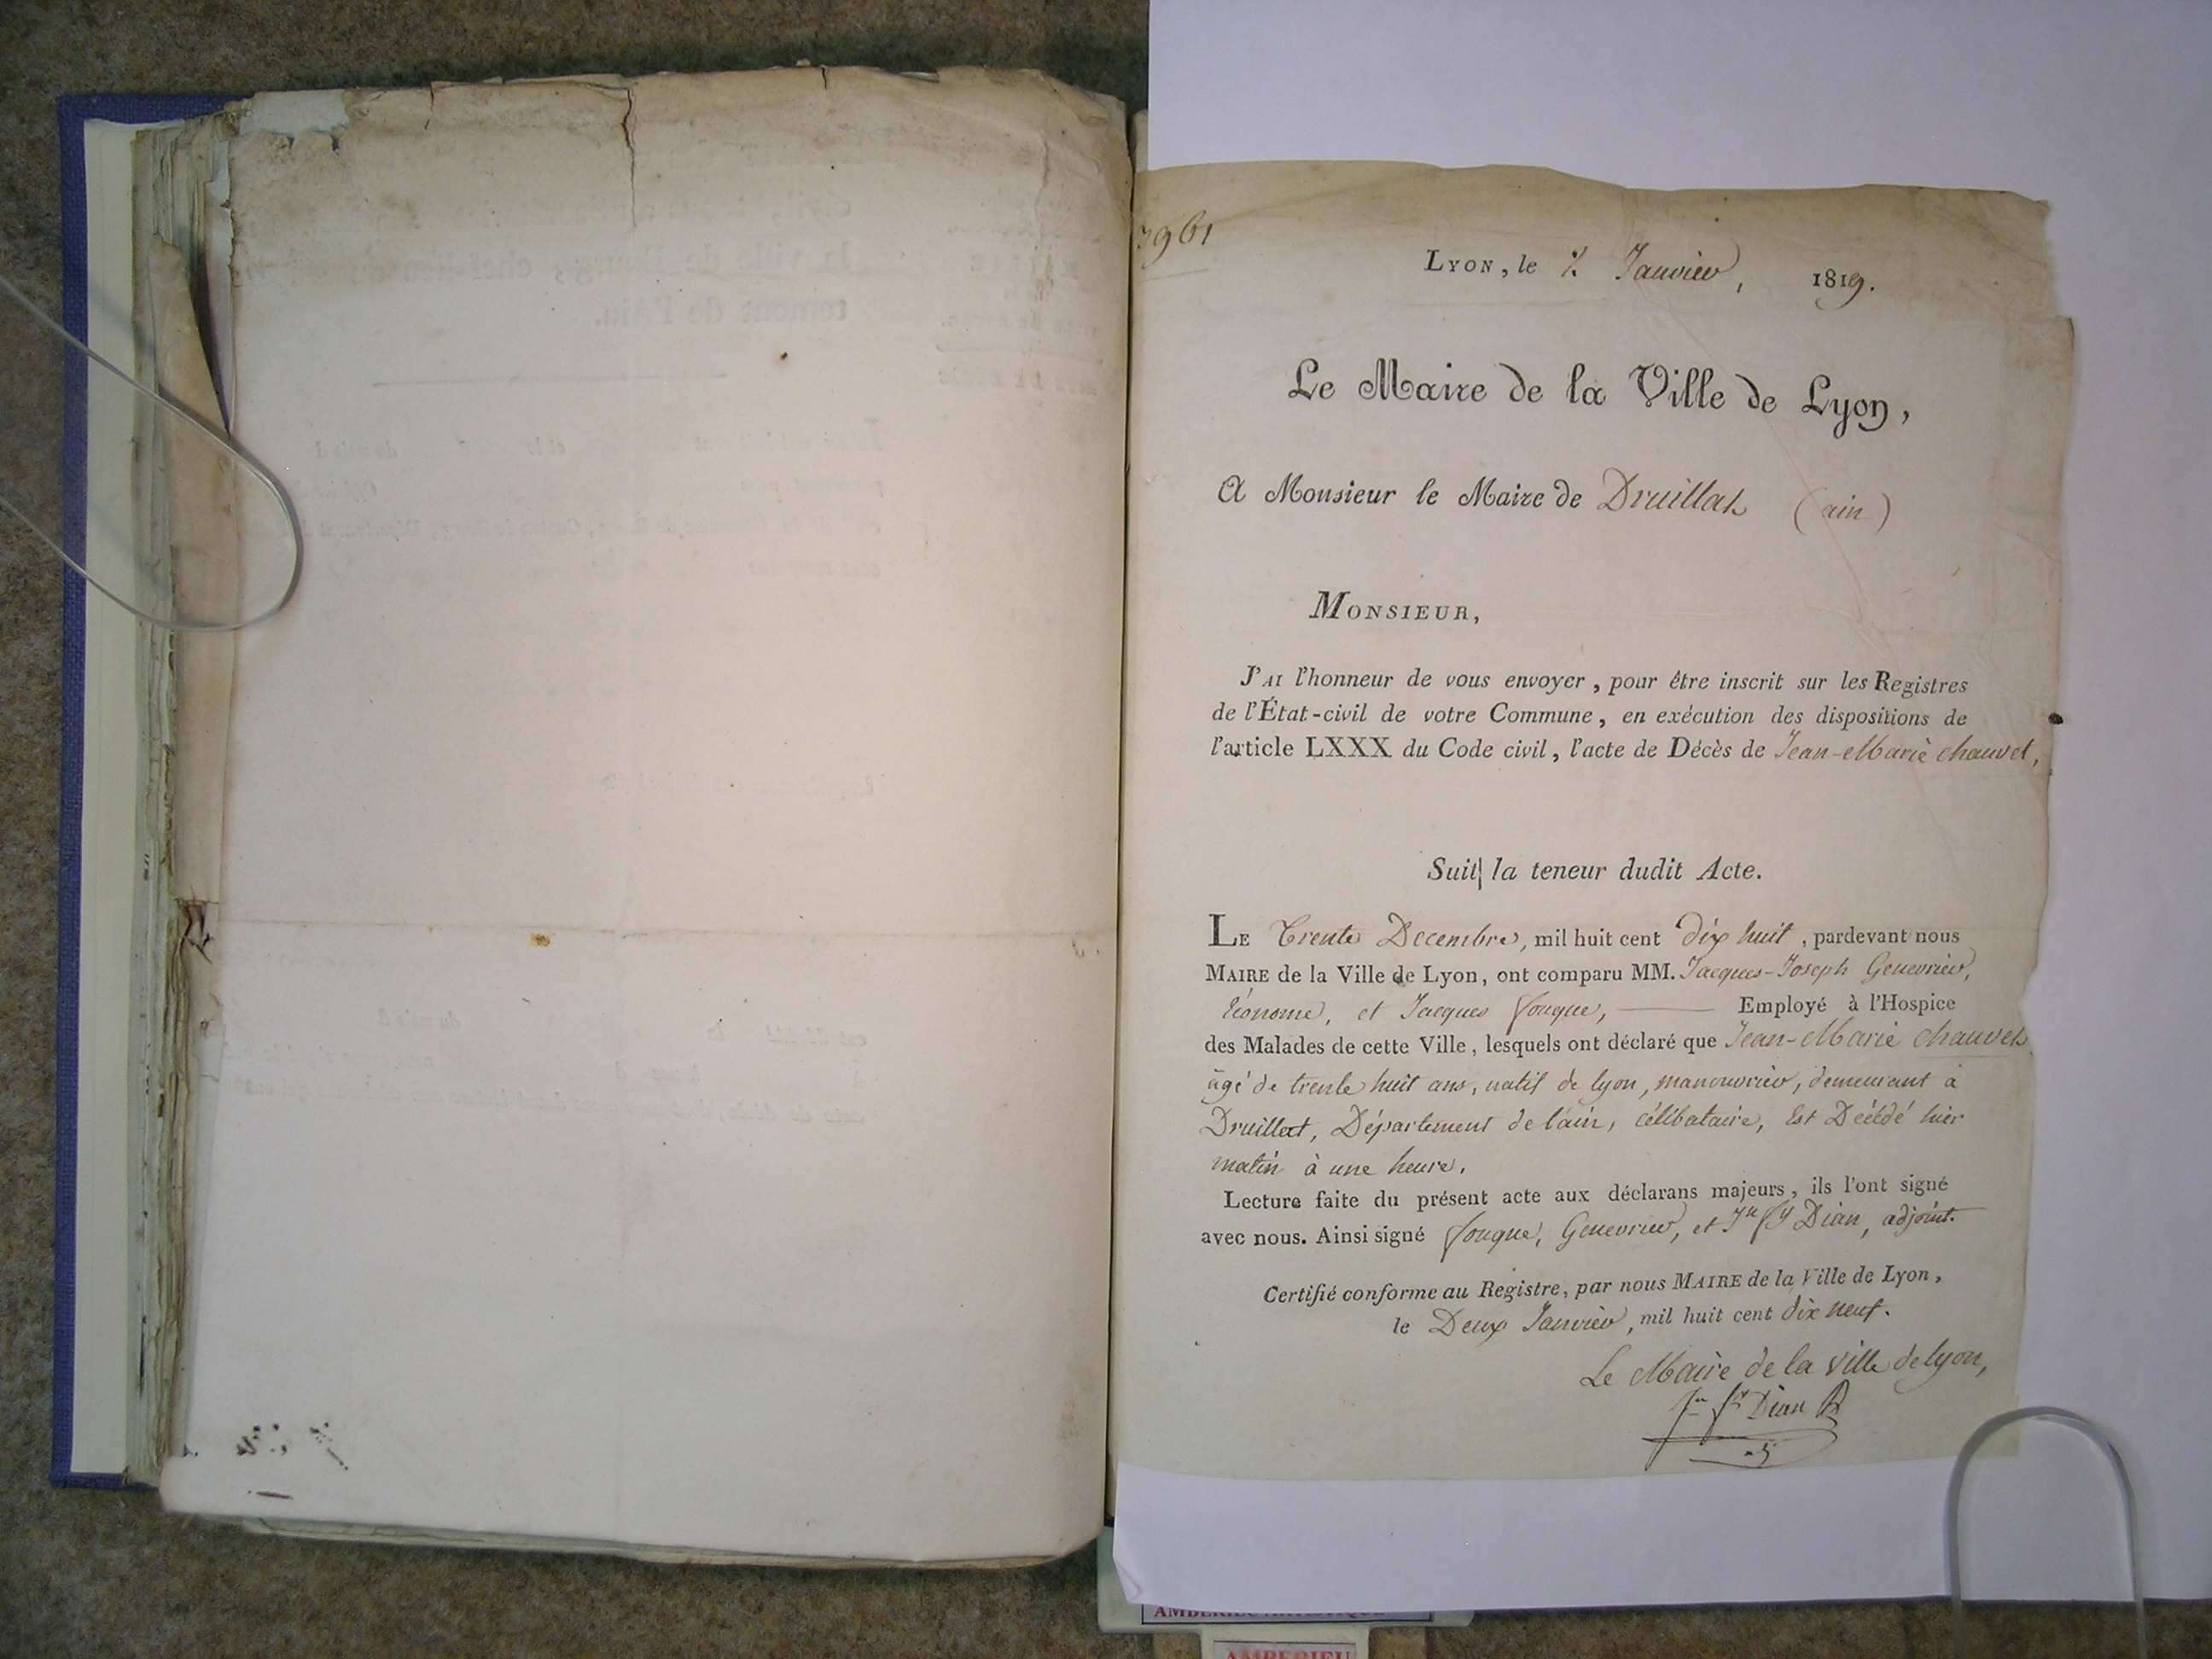 3961
Lyon, le 2 Janvier, 1819.
Le Maire de la Ville de Lyon,
A Monsieur le Maire de Druillat (ain)
Monsieur,
J'ai l'honneur de vous envoyer, pour être inscrit sur les Registres
de l'État-civil de votre Commune, en exécution des dispositions de
l'article LXXX du Code civil, l'acte de Décès de Jean-Marie Chauvet,
Suit la teneur dudit Acte.
Le Trente Decembre, mil huit cent dix huit, pardevant nous
Maire de la Ville de Lyon, ont comparu MM. Jacques-Joseph Genevrier,
Économe, et Jacques fouque, Employé à l'Hospice
des Malades de cette Ville, lesquels ont déclaré que Jean-Marie Chauvet
âgé de trente huit ans, natif de lyon, manouvrier, demeurant à
Druillat, Département de l'ain, célibataire, Est Décédé hier
matin à une heure.
Lecture faite du présent acte aux déclarans majeurs, ils l'ont signé
avec nous. Ainsi signé fouque, Genevrier, et Jn fs Dian, adjoint.
Certifié conforme au Registre, par nous Maire de la Ville de Lyon,
le Deux Janvier, mil huit cent dix neuf.
Le Maire de la ville de lyon,
Jn fs Dian
AMBERIEU